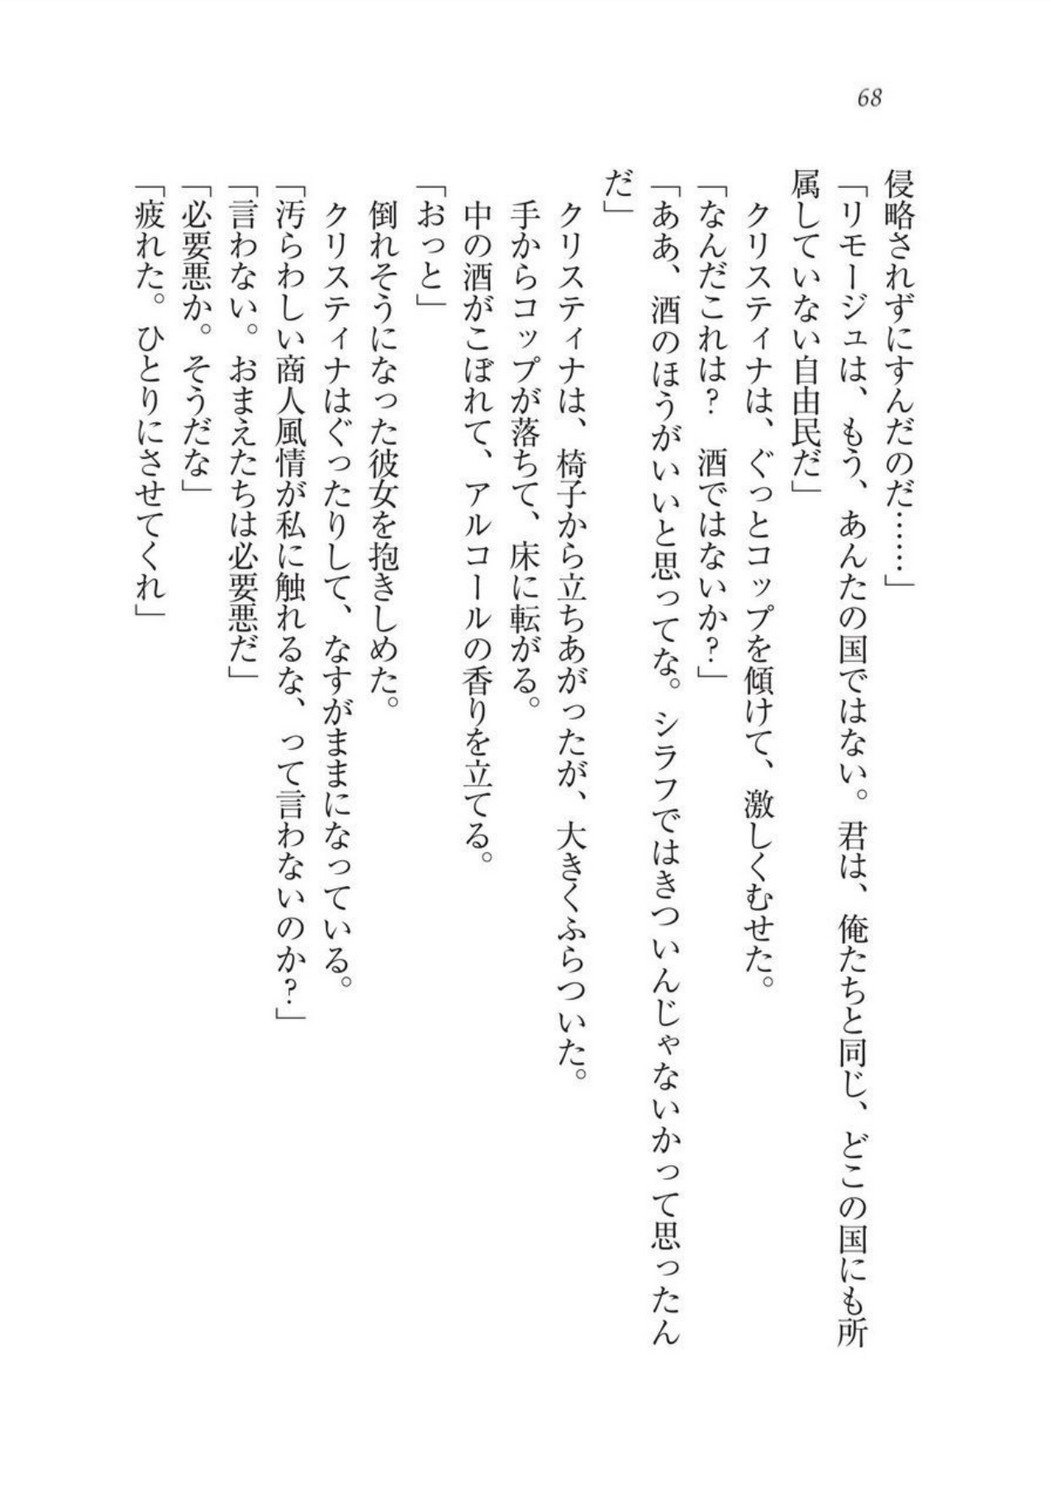 68
侵略されずにすんだのだ……」
「リモージュは、もう、あんたの国ではない。君は、俺たちと同じ、どこの国にも所
属していない自由民だ」
クリスティナは、ぐっとコップを傾けて、激しくむせた。
「なんだこれは？　酒ではないか？」
「ああ、酒のほうがいいと思ってな。シラフではきついんじゃないかって思ったん
だ」
クリスティナは、椅子から立ちあがったが、大きくふらついた。
手からコップが落ちて、床に転がる。
中の酒がこぼれて、アルコールの香りを立てる。
「おっと」
倒れそうになった彼女を抱きしめた。
クリスティナはぐったりして、なすがままになっている。
「汚らわしい商人風情が私に触れるな、って言わないのか？」
「言わない。おまえたちは必要悪だ」
「必要悪か。そうだな」
「疲れた。ひとりにさせてくれ」